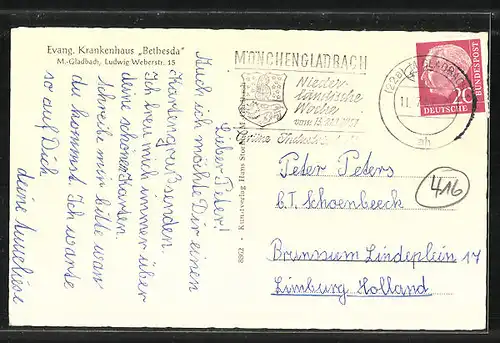 Evang. Krankenhaus „Bethesda"
M.-Gladbach, Ludwig Weberstr. 15
Lieber Peter!
Auch ich möchte Dir einen
Kartengruß senden.
Ich freu mich immer über
deine schönen Karten.
Schreibe mir bitte wann
du kommst. Ich warte
so auf Dich.
deine
Kunstverlag Hans
8962
MÖNCHENGLADBACH
Nieder-
rheinische
Woche
vom
(22a) M. GLADBACH
11. 7.
ah
DEUTSCHE
BUNDESPOST
20
Peter Peters
b.T. Schoenbeeck
Brunssum Lindeplein 17
Limburg Holland
416